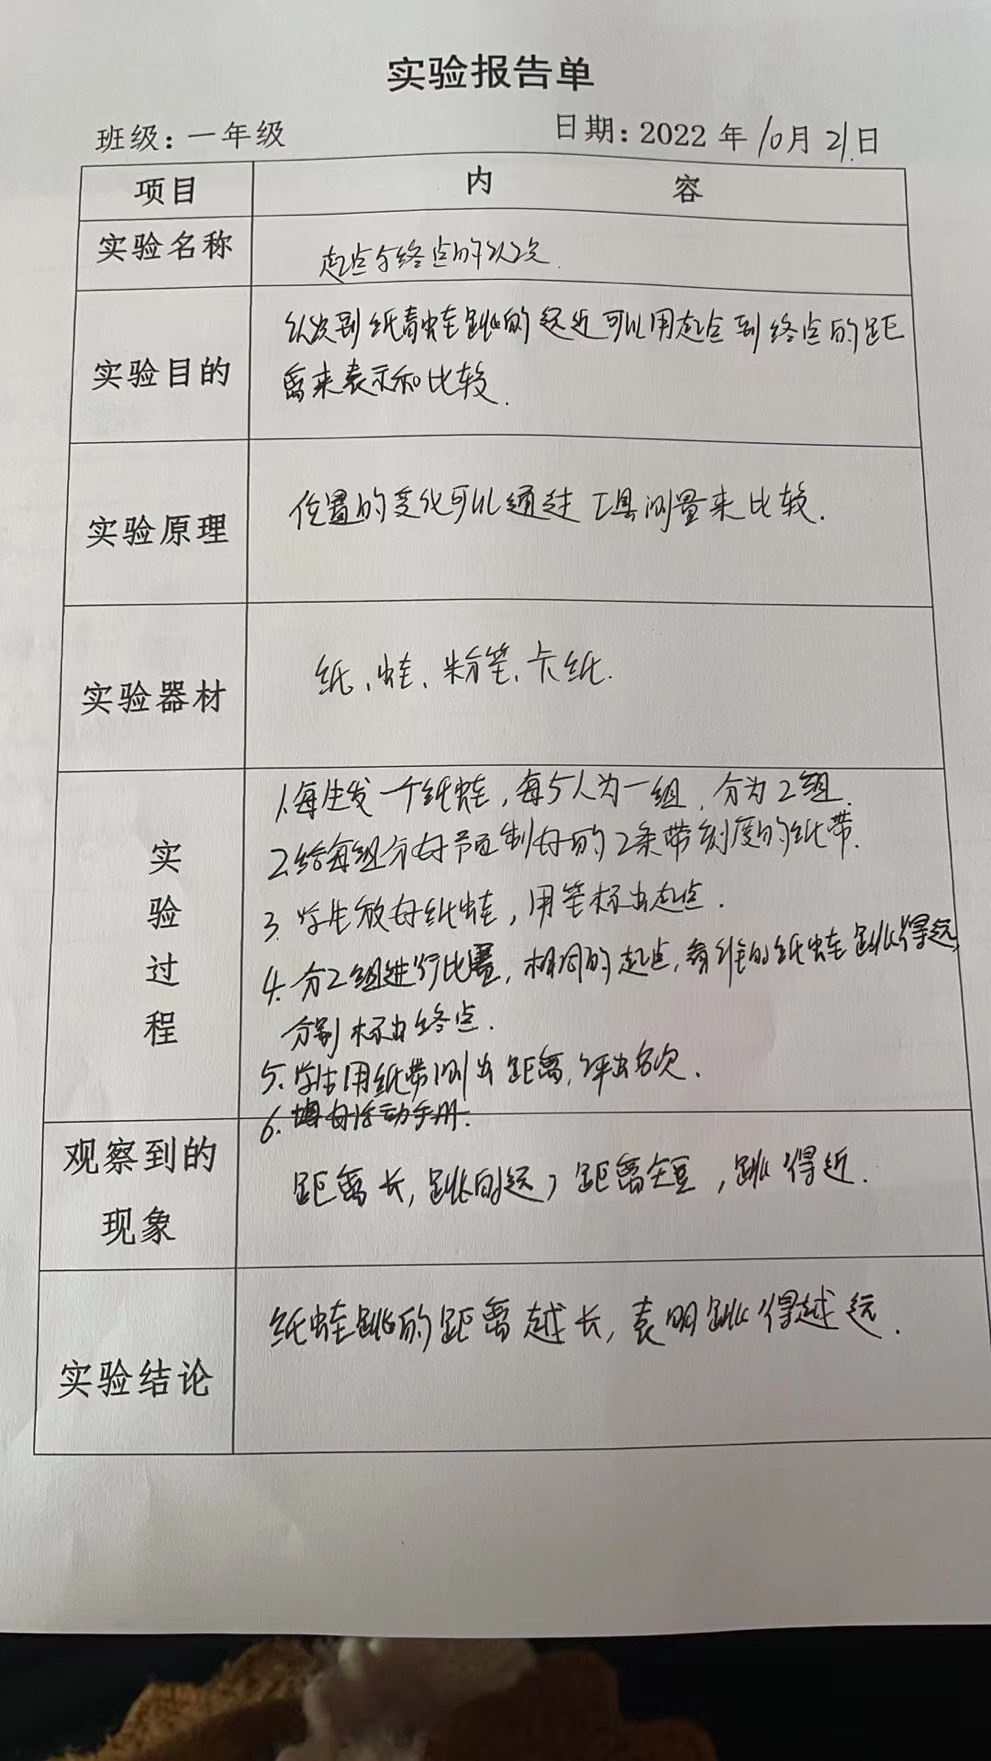 实验报告单
班级：一年级 日期：2022年10月21日
项目 内 容
实验名称 起点与终点的认识
实验目的 认识到纸青蛙跳的远近可以用起点到终点的距
离来表示和比较.
实验原理 位置的变化可以通过工具测量来比较.
实验器材 纸、蛙、粉笔、卡纸.
实验过程
1.每生发一个纸蛙,每5人为一组,分为2组.
2.给每组分好预制好的2条带刻度的纸带.
3.学生放好纸蛙,用笔标出起点.
4.分2组进行比赛,相同的起点,看谁的纸蛙跳得远,
分别标出终点.
5.学生用纸带测出距离,评出名次.
6.填好活动手册.
观察到的
现象
距离长,跳的远;距离短,跳得近.
实验结论 纸蛙跳的距离越长,表明跳得越远.